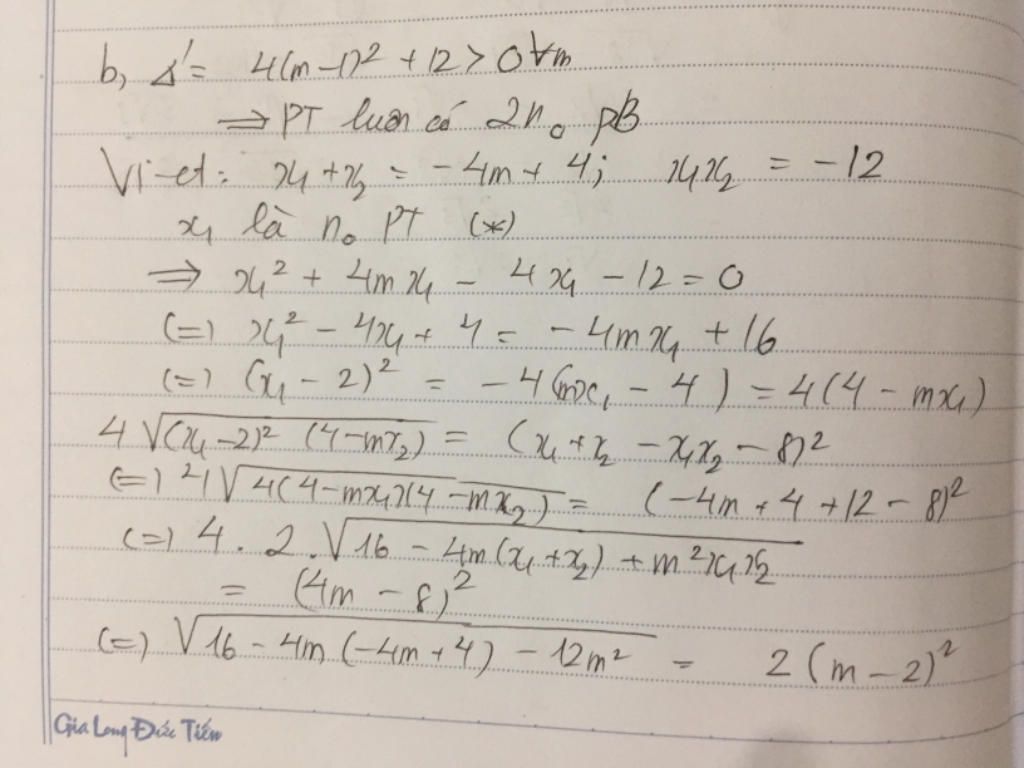 b, Δ' = 4(m-1)² + 12 > 0 ∀m
⇒ PT luôn có 2 n₀ pB
Vi-et: x₁ + x₂ = -4m + 4; x₁x₂ = -12
x₁ là n₀ PT (*)
⇒ x₁² + 4mx₁ - 4x₁ - 12 = 0
(=) x₁² - 4x₁ + 4 = -4mx₁ + 16
(=) (x₁ - 2)² = -4(mx₁ - 4) = 4(4 - mx₁)
4√((x₁-2)² (4-mx₂)) = (x₁ + x₂ - x₁x₂ - 8)²
(=) 4√(4(4-mx₁)(4-mx₂)) = (-4m + 4 + 12 - 8)²
(=) 4 . 2 . √(16 - 4m(x₁ + x₂) + m²x₁x₂)
= (4m - 8)²
(=) √(16 - 4m(-4m + 4) - 12m²) = 2(m - 2)²
Gia Long Đức Tiến